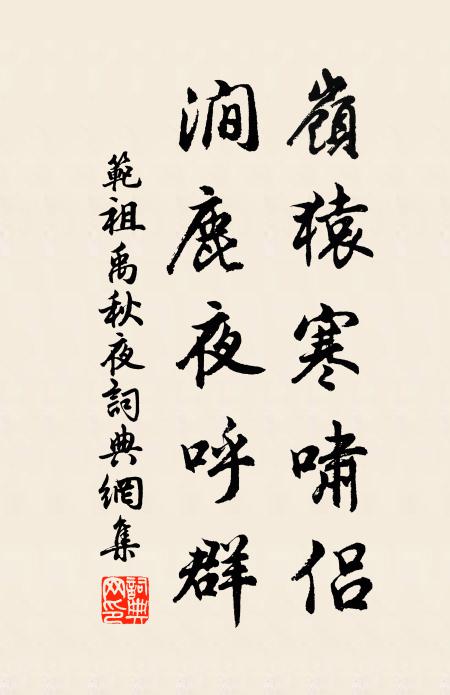 嶺猿寒嘯侶
澗鹿夜呼群
範祖禹秋夜詞典網集